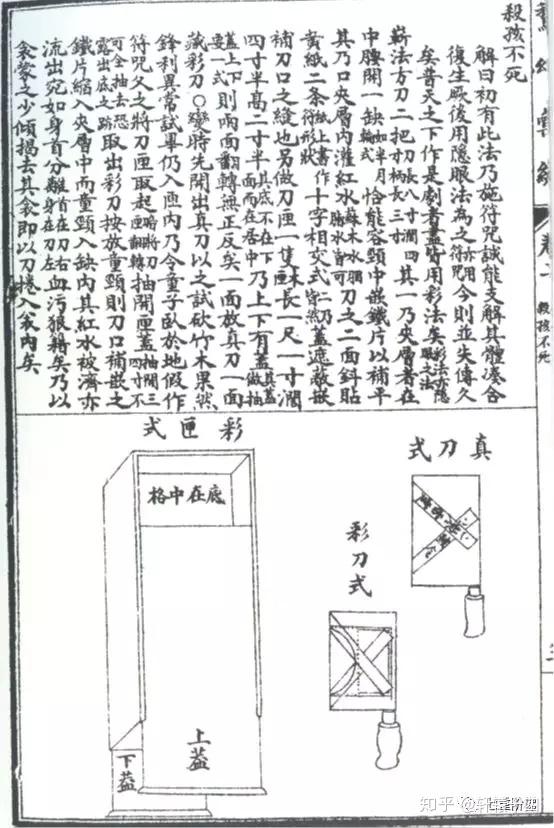 卷一
殺孩不死
殺孩不死
解曰初有此法乃施符咒誠能支解其體湊合
復生厥後用隱眼法為之亦用符咒今則並失傳久
矣昔天之下作是劇者盡皆用彩法矣彩法亦隱眼之法
嶄法方刀二把長八寸濶四寸柄長三寸其一乃夾層者在
中腰開一缺如半月輪式恰能容頸中嵌鐵片以補平
其乃口夾層內灌紅水蘇木水胭脂水皆可刀之二面斜貼
黃紙二条上書作符形狀十字相交式二刀皆然蓋遮蔽嵌
補刀口之縫也另做刀匣一隻木匣長一尺一寸濶
四寸半高二寸半其底不在下而在居中乃上下有蓋其蓋做抽
蓋上下要一式則兩面翻轉無正反矣一面放真刀一面
藏彩刀○變時先開出真刀以之試砍竹木果然
鋒利異常試畢仍入匣內乃令童子臥於地假作
符咒久之將刀匣取起暗將刀匣翻轉抽開匣蓋抽開三四寸不
可全抽去恐露出底之跡取出彩刀按放童頸則刀口補嵌之
鐵片縮入夾層中而童頸入缺內其紅水被擠亦
流出宛如身首分離首在刀右身在刀左血污狼籍矣乃以
衾蒙之少傾揭去其衾即以刀捲入衾內矣
真刀式
彩刀式
彩匣式
底在中格
上蓋
下蓋
三
知乎